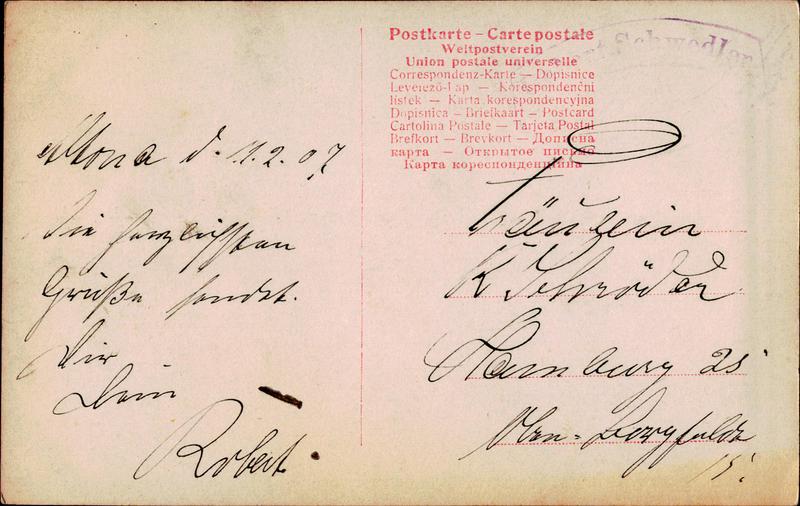 Postkarte – Carte postale
Weltpostverein
Union postale universelle
Correspondenz-Karte — Dopisnice
Levelező-Lap — Korespondenční
lístek — Karta korespondencyjna
Dopisnica — Briefkaart — Postcard
Cartolina Postale — Tarjeta Postal
Brefkort — Brevkort — Дописна
карта — Открытое письмо
Карта кореспонденцийна
Schwedler
Altona d. 11.2.07.
Die herzlichsten
Grüße sendet.
Dir
Dein
Robert.
Fräulein
K Schröder
Hamburg 25